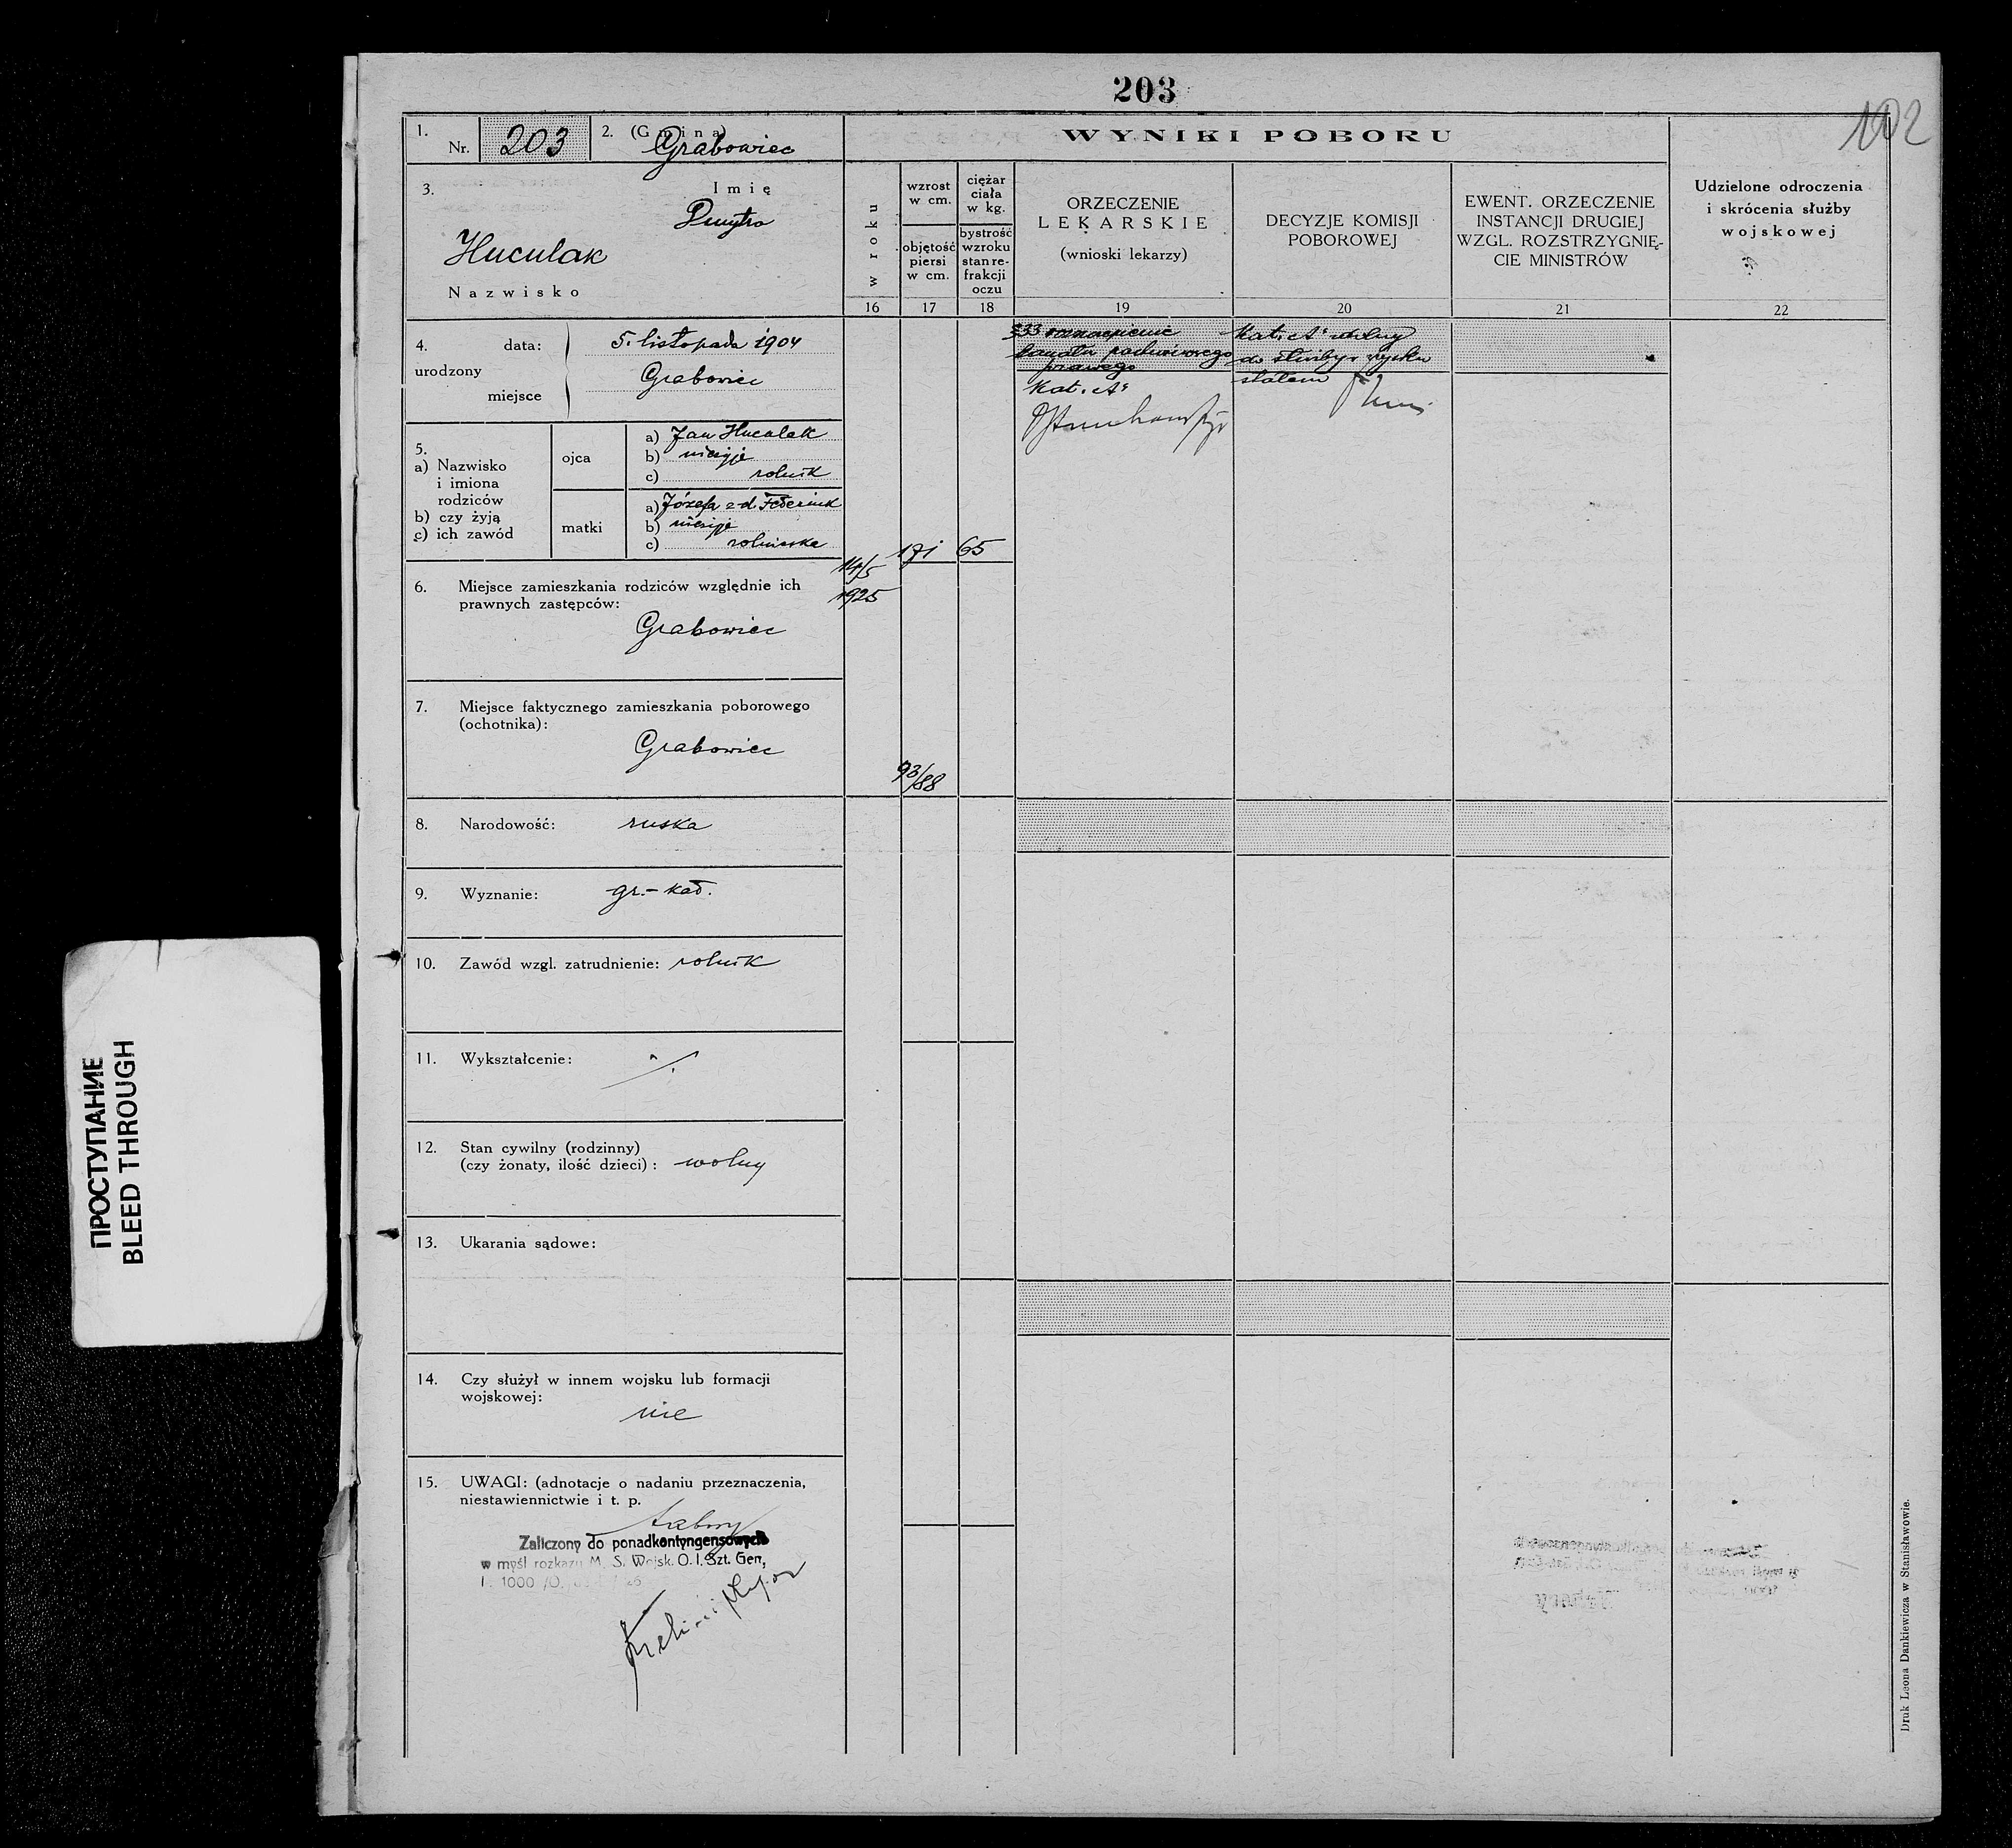 203
102
1.
Nr. 203
2. (Gmina)
Grabowiec
WYNIKI POBORU
3. Imię
Dmytro
Huculak
Nazwisko
w roku
wzrost
w cm.
objętość
piersi
w cm.
ciężar
ciała
w kg.
bystrość
wzroku
stan re-
frakcji
oczu
ORZECZENIE
LEKARSKIE
(wnioski lekarzy)
DECYZJE KOMISJI
POBOROWEJ
EWENT. ORZECZENIE
INSTANCJI DRUGIEJ
WZGL. ROZSTRZYGNIĘ-
CIE MINISTRÓW
Udzielone odroczenia
i skrócenia służby
wojskowej
16 17 18 19 20 21 22
4.
urodzony
data: 5. listopada 1904
miejsce Grabowiec
5.
a) Nazwisko
i imiona
rodziców
b) czy żyją
c) ich zawód
ojca
a) Jan Huculak
b) nieżyje
c) rolnik
matki
a) Józefa z d. Federiuk
b) nieżyje
c) rolniczka
14/5
1925
171 65
93/88
§33
kanału pachwinowego
prawego
Kat. A
Kat. A zdolny
do służby w wojsku
stałem
6. Miejsce zamieszkania rodziców względnie ich
prawnych zastępców:
Grabowiec
7. Miejsce faktycznego zamieszkania poborowego
(ochotnika):
Grabowiec
8. Narodowość: ruska
9. Wyznanie: gr.-kat.
10. Zawód wzgl. zatrudnienie: rolnik
11. Wykształcenie: ·/.
12. Stan cywilny (rodzinny)
(czy żonaty, ilość dzieci): wolny
13. Ukarania sądowe:
14. Czy służył w innem wojsku lub formacji
wojskowej:
nie
15. UWAGI: (adnotacje o nadaniu przeznaczenia,
niestawiennictwie i t. p.
Zaliczony do ponadkontyngensowych
w myśl rozkazu M. S. Wojsk. O. I. Szt. Gen,
1000
Druk Leona Dankiewicza w Stanisławowie.
ПРОСТУПАНИЕ
BLEED THROUGH